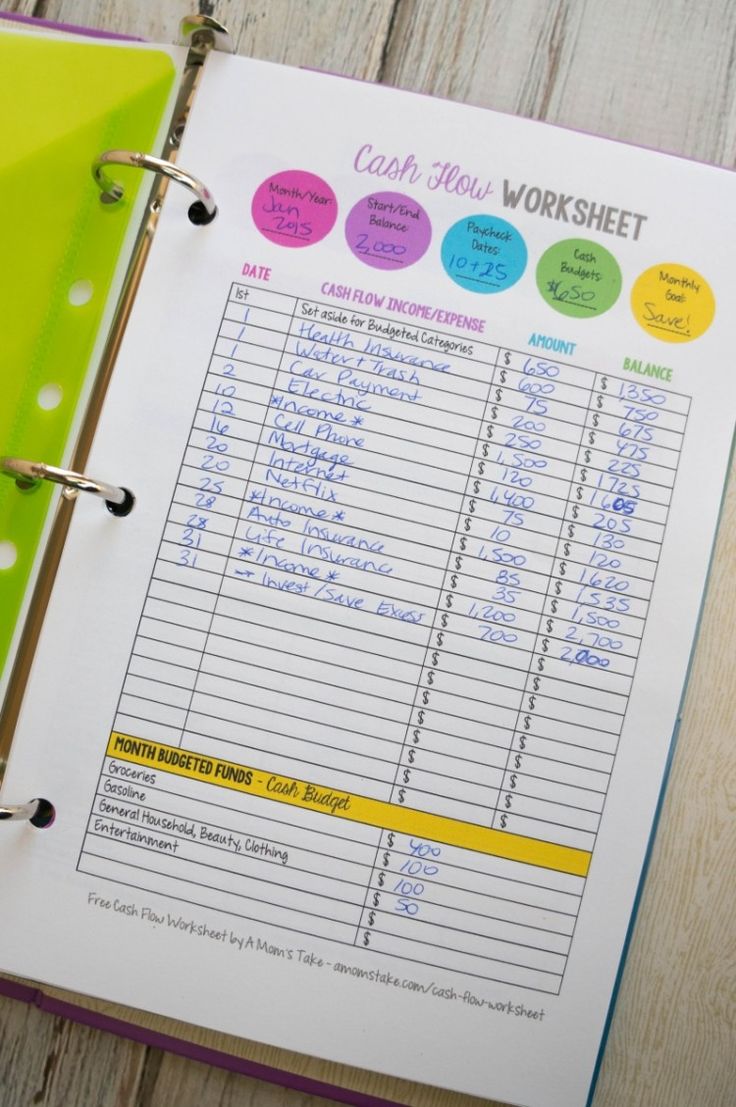 Cash Flow WORKSHEET
Month/Year: Jan 2015
Start/End Balance: 2,000
Paycheck Dates: 10 + 25
Cash Budgets: $650
Monthly Goal: Save!
DATE CASH FLOW INCOME/EXPENSE AMOUNT BALANCE
1st Set aside for Budgeted Categories $ 650 $ 1,350
1 Health Insurance $ 600 $ 750
1 Water + Trash $ 75 $ 675
1 Car Payment $ 200 $ 475
2 Electric $ 250 $ 225
10 *Income* $ 1,500 $ 1725
12 Cell Phone $ 120 $ 1605
16 Mortgage $ 1,400 $ 205
20 Internet $ 75 $ 130
20 Netflix $ 10 $ 120
25 *Income* $ 1,500 $ 1620
28 Auto Insurance $ 85 $ 1,535
28 Life Insurance $ 35 $ 1,500
31 *Income* $ 1,200 $ 2,700
31 → Invest/Save Excess $ 700 $ 2,000
$ $
$ $
$ $
$ $
$ $
$ $
$ $
MONTH BUDGETED FUNDS - Cash Budget
Groceries $ 400
Gasoline $ 100
General Household, Beauty, Clothing $ 100
Entertainment $ 50
$
$
Free Cash Flow Worksheet by A Mom's Take - amomstake.com/cash-flow-worksheet